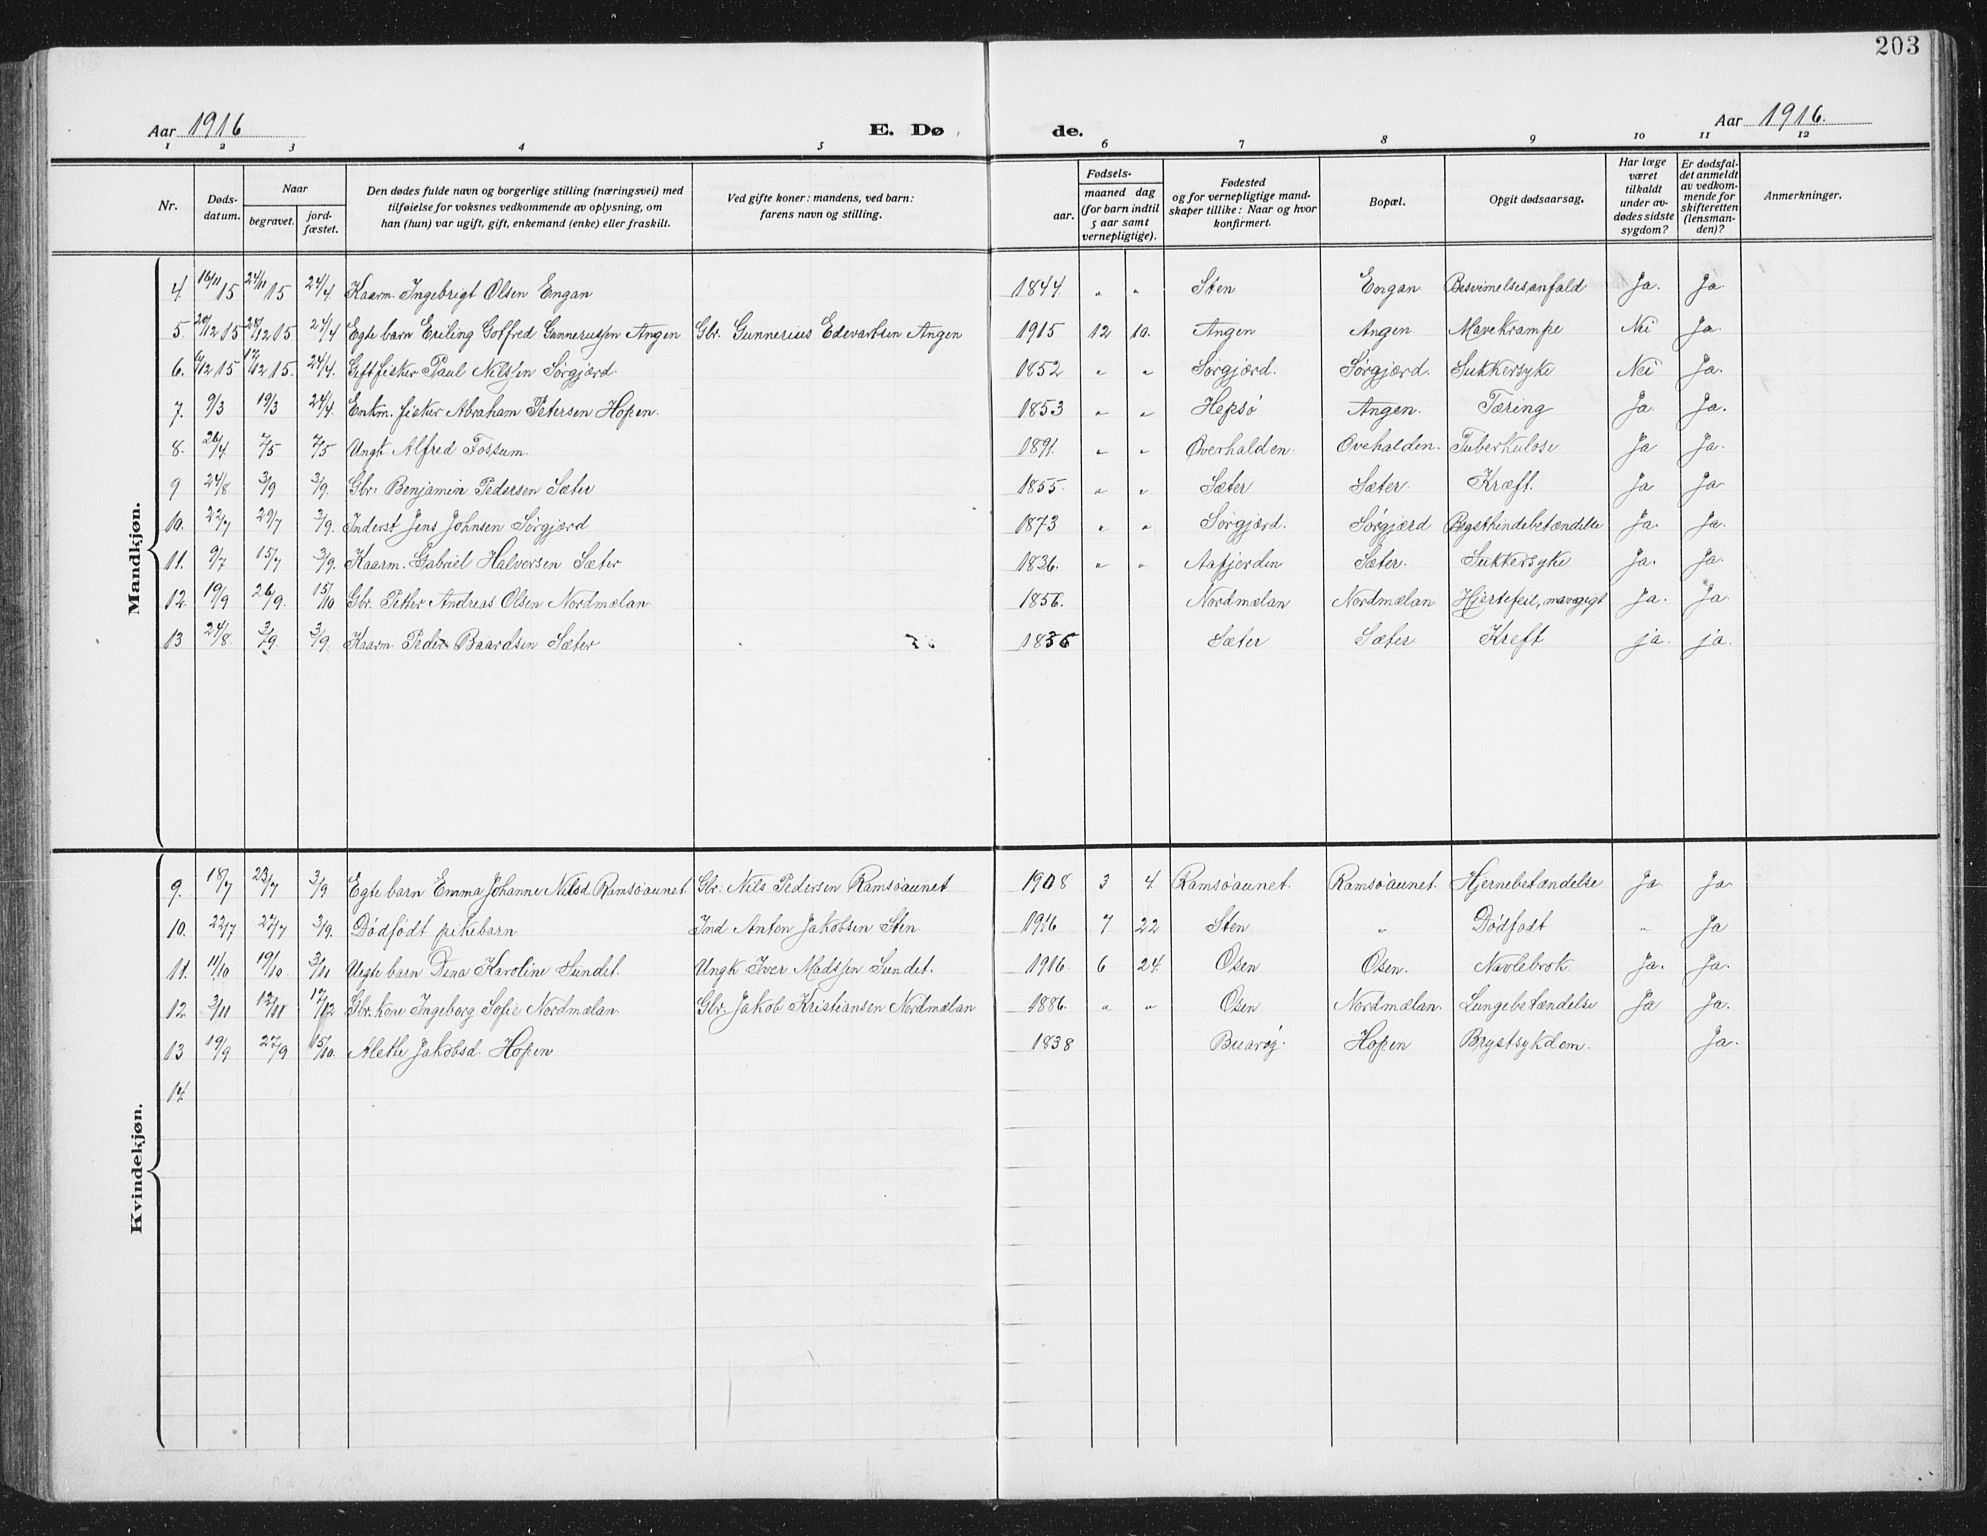 203
Aar 1916 E. Dø de. Aar 1916.
1 2 3 4 5 6 7 8 9 10 11 12
Nr.
Døds-
datum.
Naar
begravet.
jord-
fæstet.
Den dødes fulde navn og borgerlige stilling (næringsvei) med
tilføielse for voksnes vedkommende av oplysning, om
han (hun) var ugift, gift, enkemand (enke) eller fraskilt.
Ved gifte koner: mandens, ved barn:
farens navn og stilling.
Fødsels-
aar.
maaned dag
(for barn indtil
5 aar samt
vernepligtige).
Fødested
og for vernepligtige mand-
skaper tillike: Naar og hvor
konfirmert.
Bopæl.
Opgit dødsaarsag.
Har læge
været
tilkaldt
under av-
dødes sidste
sygdom?
Er dødsfal-
det anmeldt
av vedkom-
mende for
skifteretten
(lensman-
den)?
Anmerkninger.
Mandkjøn.
4. 16/11 15 24/11 15 24/4. Kaarm. Ingebrigt Olsen Engan 1844 " " Sten Engan Besvimelsesanfald Ja. Ja
5. 20/12 15 12 15 24/4 Egte barn Erling Gotfred Gunneriussen Angen Gbr. Gunnerius Edevartsen Angen 1915 12 10. Angen Angen Mavekrampe Nei Ja.
6. 12 15 17/12 15. 24/4. Gift fisker Paul Nilssen Sørgjærd. 1852 " " Sørgjærd. Sørgjærd. Sukkersyke Nei Ja.
7. 9/3 19/3 24/4. Enkm. fisker Abraham Petersen Hopen. 1853 " " Hepsø Angen. Tæring Ja. Ja.
8. 26/4 7/5 7/5 Ungk. Alfred Fossum. 1891. " " Overhalden. Ovehalden. Tuberkulose Ja Ja.
9 24/8 3/9 3/9. Gbr: Benjamin Pedersen Sæter 1855. " " Sæter Sæter. Kræft. Ja Ja
10. 22/7 29/7 3/9. Inderst Jens Johnsen Sørgjærd 1873 " " Sørgjærd. Sørgjærd Brysthindebetændelse Ja. Ja.
11. 9/7 15/7 3/9. Kaarm. Gabriel Halversen Sæter 1836. " " Aafjorden Sæter. Sukkersyke Ja. Ja.
12. 19/9 26/9. 15/10 Gbr. Petter Andreas Olsen Nordmælan. 1856. Nordmælan Nordmælan Hjertefeil, mavegigt Ja. Ja.
13 24/8. 3/9 3/9. Kaarm. Peder Baardsen Sæter 1836 Sæter Sæter Kreft ja. ja.
Kvindekjøn.
9. 18/7 23/7 3/9 Egte barn Emma Johanne Nilsd. Ramsøaunet Gbr: Nils Pedersen Ramsøaunet 1908 3 4 Ramsøaunet. Ramsøaunet. Hjernebetændelse Ja Ja
10. 22/7 27/7 3/9. Dødfødt pikebarn Ind Anton Jakobsen Sten 1916 7 22 Sten " Dødfødt " Ja
11. 11/10 19/10. 3/11 Uegte barn Dina Karoline Sundet. Ungk Iver Madssen Sundet. 1916. 6 24. Osen Osen. Navlebrok. Ja. Ja.
12 3/11 12/11 17/12 Gbr. kone Ingeborg Sofie Nordmælan. Gbr. Jakob Kristiansen Nordmælan 1886. " " Osen Nordmælan. Lungebetændelse Ja Ja.
13 19/9 27/9 15/10. Alette Jakobsd. Hopen 1838 Buarøy. Hopen Brystsykdom. Ja.
14